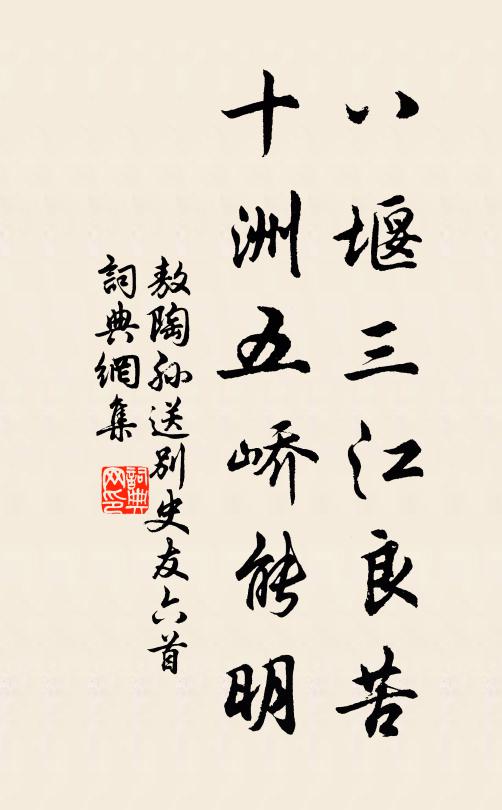 八堰三江良苦
十洲五峤能明
敖陶孙送别史友六首
詞典網集
詞典网印